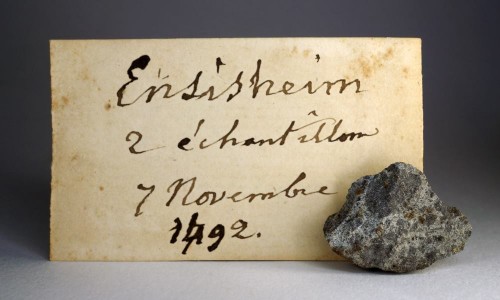 Ensisheim
2 échantillons
7 Novembre
1492.